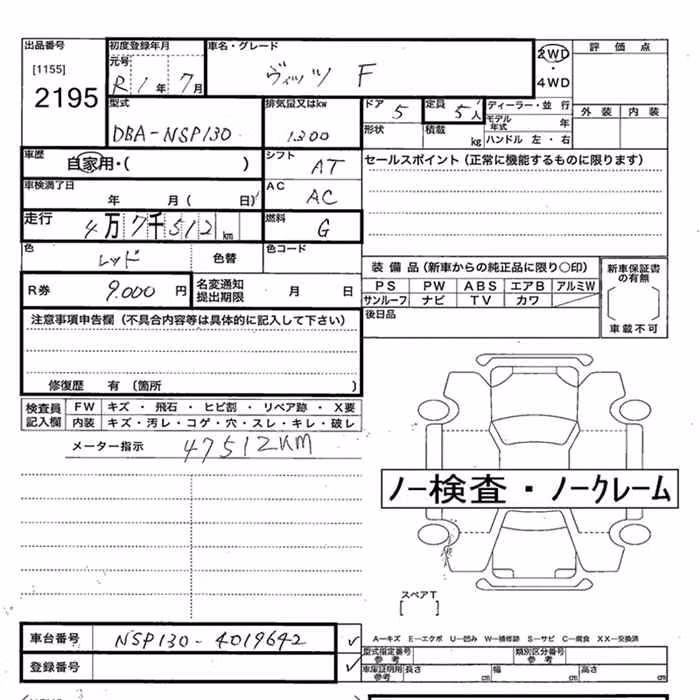 出品番号 初度登録年月 車名・グレード 2WD 評価点
[1155] 元号
2195 R1年 7月 ヴィッツ F ・ 4WD
型式 排気量又はkw ドア 5 定員 5人 ディーラー・並 行 外装 内装
モデル年式 年
DBA-NSP130 1300 形状 積載 kg ハンドル 左・右
車歴 自家用・( ) シフト AT セールスポイント(正常に機能するものに限ります)
車検満了日 年 月( 日) AC AC
走行 4万7千512km 燃料 G
色 レッド 色替 色コード
装備品(新車からの純正品に限り○印) 新車保証書の有無
R券 9.000円 名変通知提出期限 月 日 PS PW ABS エアB アルミW
サンルーフ ナビ TV カワ
注意事項申告欄(不具合内容等は具体的に記入して下さい) 後日品 車載不可
修復歴 有 (箇所 )
検査員記入欄 FW キズ・飛石・ヒビ割・リペア跡・X要
内装 キズ・汚レ・コゲ・穴・スレ・キレ・破レ
メーター指示 47512KM
ノー検査・ノークレーム
スペアT
[ ]
車台番号 NSP130-4019642 ✓ A-キズ E-エクボ U-凹み W-補修跡 S-サビ C-腐食 XX-交換済
型式指定番号 参考 類別区分番号 参考
登録番号 ✓ 車庫証明用 参考 長さ cm 幅 cm 高さ cm